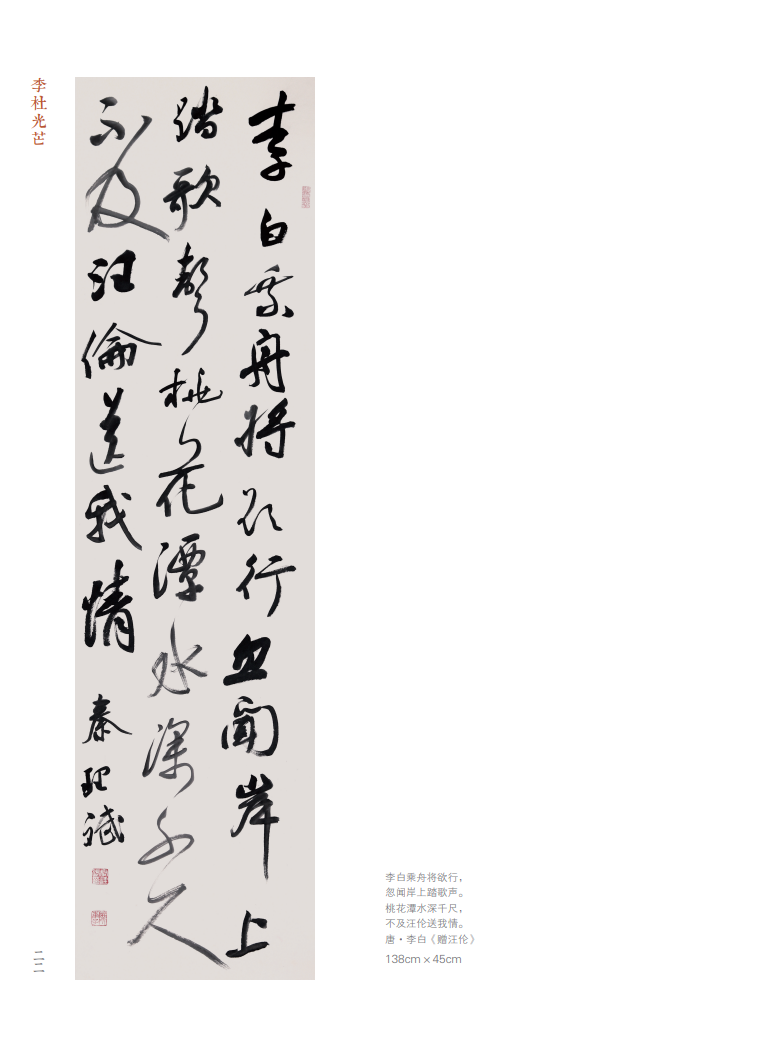 李杜光芒
李白乘舟将欲行忽闻岸上
踏歌聲桃花潭水深千尺
不及汪倫送我情
秦理斌
二二
李白乘舟将欲行，
忽闻岸上踏歌声。
桃花潭水深千尺，
不及汪伦送我情。
唐·李白《赠汪伦》
138cm×45cm